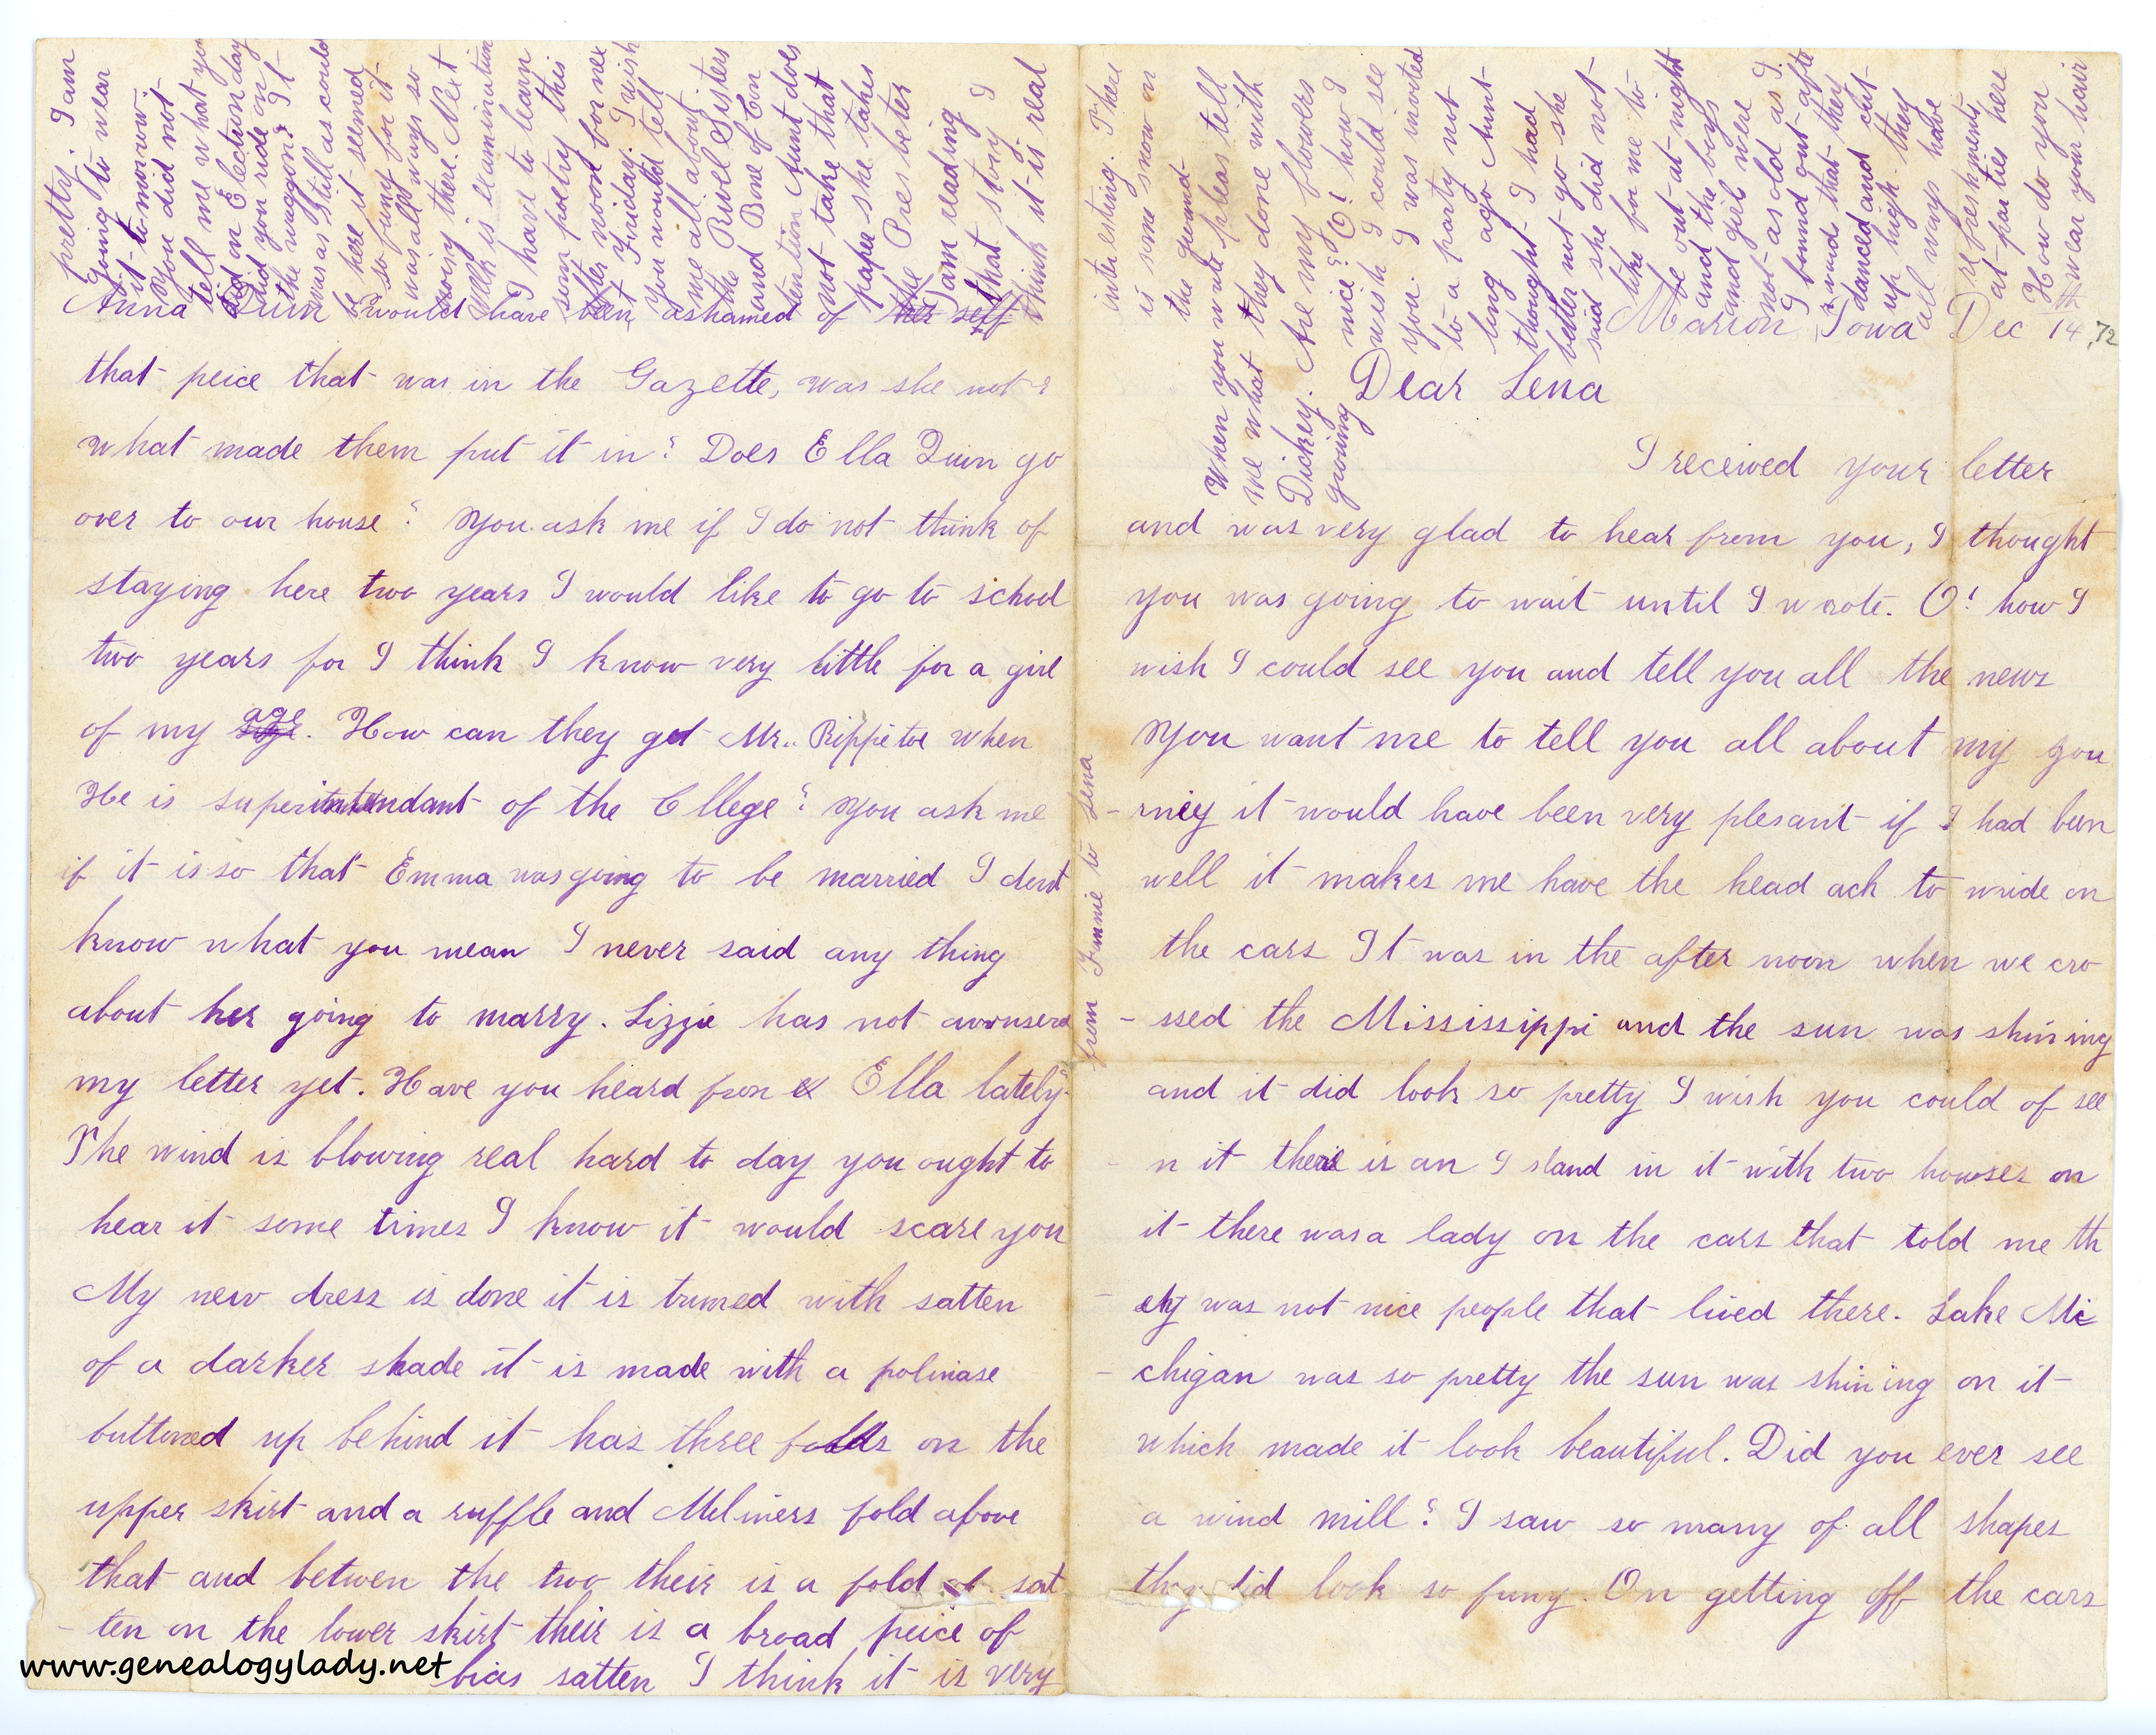 Marion Iowa Dec 14th, 72
Dear Lena
I received your letter
and was very glad to hear from you, I thought
you was going to wait until I wrote. O! how I
wish I could see you and tell you all the news
You want me to tell you all about my jou
-rney it would have been very plesant if I had been
well it makes me have the head ach to wride on
the cars It was in the after noon when we cro
-ssed the Mississippi and the sun was shining
and it did look so pretty I wish you could of see
-n it their is an Island in it with two howses on
it there was a lady on the cars that told me th
-ey was not nice people that lived there. Lake Mi
-chigan was so pretty the sun was shining on it
which made it look beautiful. Did you ever see
a wind mill? I saw so many of all shapes
they did look so funy. On getting off the cars
Anna Quin would have been ashamed of her self
that peice that was in the Gazette, was she not?
what made them put it in? Does Ella Quin go
over to our house? You ask me if I do not think of
staying here two years I would like to go to school
two years for I think I know very little for a girl
of my age. How can they get Mr. Rippetoe when
He is superintendant of the Cllege? You ask me
if it is so that Emma was going to be married I dont
know what you mean I never said any thing
about her going to marry. Lizzie has not awnserd
my letter yet. Have you heard from Ella lately.
The wind is blowing real hard to day you ought to
hear it some times I know it would scare you
My new dress is done it is trimed with satten
of a darker shade it is made with a polinase
buttoned up behind it has three folds on the
upper skirt and a ruffle and Miliners fold above
that and betwen the two their is a fold of sat
-ten on the lower skirt their is a broad peice of
bias satten I think it is very
pretty. I am
going to wear
it to morrow.
You did not
tell me what you
did on Election day
did you ride on
the waggon? It
was as still as could
be here it seemed
so funy for it
was all ways so
noisy there. Next
Week is examination
I have to learn
som poetry this
after noon for nex
Friday. I wish
you would tell
me all about
the Ruvel Sisters
and Bone of Con
tention Aunt does
not take that
paper she takes
the Presbeter
I am reading
that story I
think it is real
interesting. There
is some snow on
the gound
When you write pleas tell
me what they done with
Dickey. Are my flowers
growing nice? O! how I
wish I could see
you. I was invited
to a party not
long ago Aunt
thought I had
better not go she
said she did not
like for me to
be out at night
and the boys
and girl were
not as old as I.
I found out after
wards that they
danced and cut
up high they
all ways have
refreshments
at parties here
How do you
wear your hair
from Fannie to Lena
www.genealogylady.net